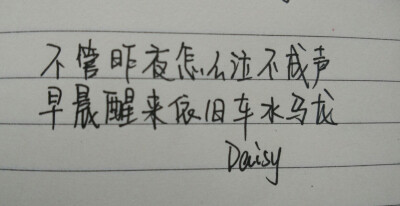 不管昨夜怎么泣不成声
早晨醒来依旧车水马龙
Daisy